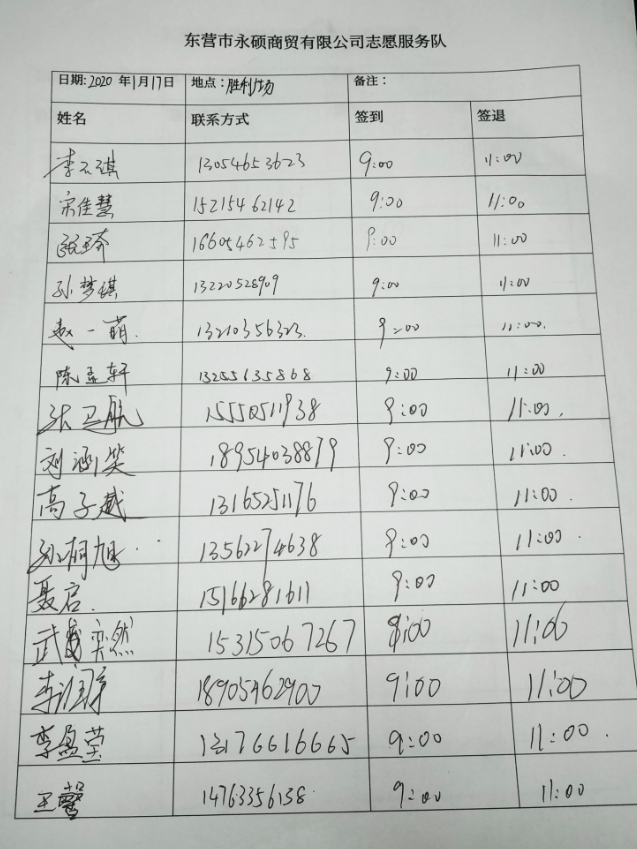 东营市永硕商贸有限公司志愿服务队
日期:2020 年1月17日 地点:胜利广场 备注:
姓名 联系方式 签到 签退
李云琪 13054653623 9:00 11:00
宋佳慧 15215462142 9:00 11:00
16605462595 9:00 11:00
孙梦琪 13220528909 9:00 11:00
赵一萌. 13210356323. 9:00 11:00.
陈孟轩 13255635868 9:00 11:00
15550511938 9:00 11:00.
刘涵笑 18954038879 9:00 11:00.
高子越 13165251176 9:00 11:00.
旭 13562274638 9:00 11:00.
聂启. 15166281611 9:00 11:00
武奕然 15315067267 9:00 11:00
李 18905462900 9:00 11:00
李盈莹 13176616665 9:00 11:00.
王馨 14763356138. 9:00 11:00